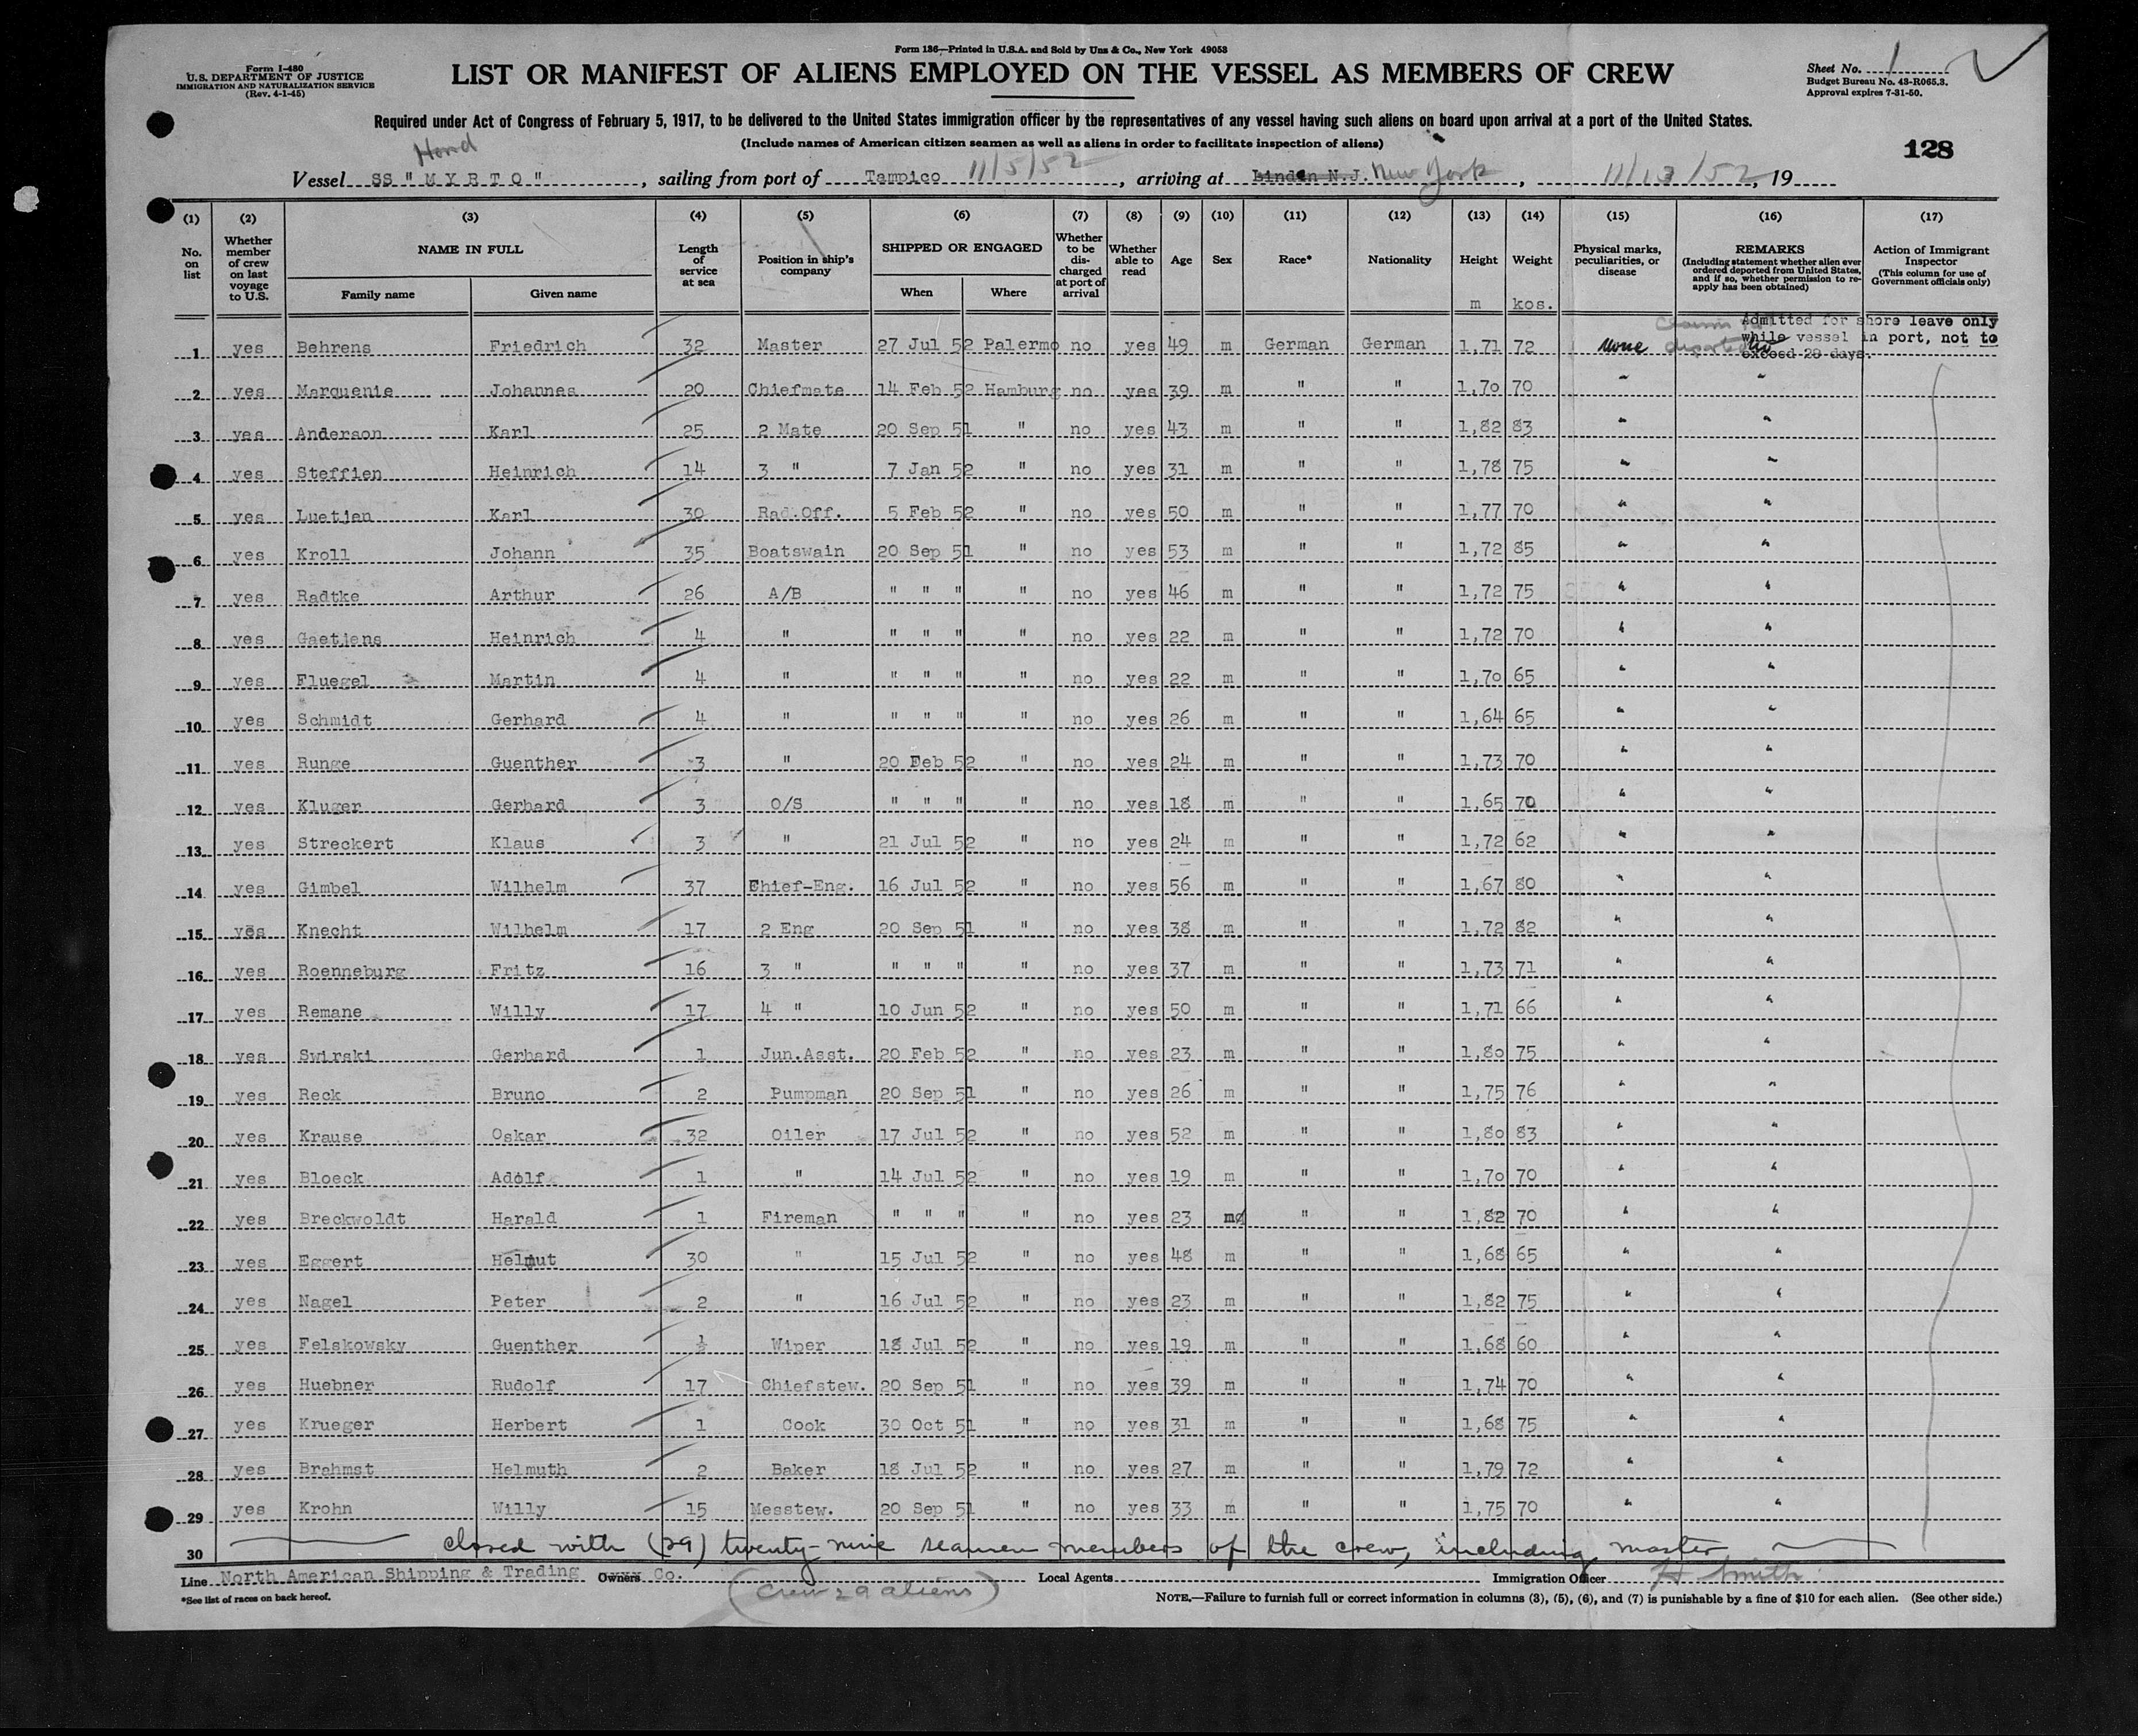 Form 136—Printed in U.S.A. and Sold by Uns & Co., New York 49053
Form I-480
U.S. DEPARTMENT OF JUSTICE
IMMIGRATION AND NATURALIZATION SERVICE
(Rev. 4-1-45)
LIST OR MANIFEST OF ALIENS EMPLOYED ON THE VESSEL AS MEMBERS OF CREW
Sheet No. 1
Budget Bureau No. 43-R065.3.
Approval expires 7-31-50.
Required under Act of Congress of February 5, 1917, to be delivered to the United States immigration officer by the representatives of any vessel having such aliens on board upon arrival at a port of the United States.
(Include names of American citizen seamen as well as aliens in order to facilitate inspection of aliens)
128
Hond
Vessel SS "MYRTO", sailing from port of Tampico 11/5/52, arriving at Linden N.J. New York, 11/13/52, 19
(1) (2) (3) (4) (5) (6) (7) (8) (9) (10) (11) (12) (13) (14) (15) (16) (17)
No. on list
Whether member of crew on last voyage to U.S.
NAME IN FULL
Family name Given name
Length of service at sea
Position in ship's company
SHIPPED OR ENGAGED
When Where
Whether to be dis-charged at port of arrival
Whether able to read
Age Sex Race* Nationality
Height m
Weight kos.
Physical marks, peculiarities, or disease
REMARKS
(Including statement whether alien ever ordered deported from United States, and if so, whether permission to re-apply has been obtained)
Action of Immigrant Inspector
(This column for use of Government officials only)
Admitted for shore leave only
while vessel in port, not to
exceed 29 days.
1 yes Behrens Friedrich 32 Master 27 Jul 52 Palermo no yes 49 m German German 1,71 72 None No
2 yes Marquenie Johannes 20 Chiefmate 14 Feb 52 Hamburg no yes 39 m " " 1,70 70 " "
3 yes Anderson Karl 25 2 Mate 20 Sep 51 " no yes 43 m " " 1,82 83 " "
4 yes Steffien Heinrich 14 3 " 7 Jan 52 " no yes 31 m " " 1,78 75 " "
5 yes Luetjen Karl 30 Rad.Off. 5 Feb 52 " no yes 50 m " " 1,77 70 " "
6 yes Kroll Johann 35 Boatswain 20 Sep 51 " no yes 53 m " " 1,72 85 " "
7 yes Radtke Arthur 26 A/B " " " " no yes 46 m " " 1,72 75 " "
8 yes Gaetjens Heinrich 4 " " " " " no yes 22 m " " 1,72 70 " "
9 yes Fluegel Martin 4 " " " " " no yes 22 m " " 1,70 65 " "
10 yes Schmidt Gerhard 4 " " " " " no yes 26 m " " 1,64 65 " "
11 yes Runge Guenther 3 " 20 Feb 52 " no yes 24 m " " 1,73 70 " "
12 yes Kluger Gerhard 3 O/S " " " " no yes 18 m " " 1,65 70 " "
13 yes Streckert Klaus 3 " 21 Jul 52 " no yes 24 m " " 1,72 62 " "
14 yes Gimbel Wilhelm 37 Chief-Eng. 16 Jul 52 " no yes 56 m " " 1,67 80 " "
15 yes Knecht Wilhelm 17 2 Eng 20 Sep 51 " no yes 38 m " " 1,72 82 " "
16 yes Roenneburg Fritz 16 3 " " " " " no yes 37 m " " 1,73 71 " "
17 yes Remane Willy 17 4 " 10 Jun 52 " no yes 50 m " " 1,71 66 " "
18 yes Swirski Gerhard 1 Jun.Asst. 20 Feb 52 " no yes 23 m " " 1,80 75 " "
19 yes Reck Bruno 2 Pumpman 20 Sep 51 " no yes 26 m " " 1,75 76 " "
20 yes Krause Oskar 32 Oiler 17 Jul 52 " no yes 52 m " " 1,80 83 " "
21 yes Bloeck Adolf 1 " 14 Jul 52 " no yes 19 m " " 1,70 70 " "
22 yes Breckwoldt Harald 1 Fireman " " " " no yes 23 m " " 1,82 70 " "
23 yes Eggert Helmut 30 " 15 Jul 52 " no yes 48 m " " 1,68 65 " "
24 yes Nagel Peter 2 " 16 Jul 52 " no yes 23 m " " 1,82 75 " "
25 yes Felskowsky Guenther ½ Wiper 18 Jul 52 " no yes 19 m " " 1,68 60 " "
26 yes Huebner Rudolf 17 Chiefstew. 20 Sep 51 " no yes 39 m " " 1,74 70 " "
27 yes Krueger Herbert 1 Cook 30 Oct 51 " no yes 31 m " " 1,68 75 " "
28 yes Brahmst Helmuth 2 Baker 18 Jul 52 " no yes 27 m " " 1,79 72 " "
29 yes Krohn Willy 15 Messtew. 20 Sep 51 " no yes 33 m " " 1,75 70 " "
30 closed with (29) twenty-nine seamen members of the crew, including master
Line North American Shipping & Trading Owners Co. Local Agents Immigration Officer H Smith
(Crew 29 aliens)
*See list of races on back hereof.
NOTE.—Failure to furnish full or correct information in columns (3), (5), (6), and (7) is punishable by a fine of $10 for each alien. (See other side.)